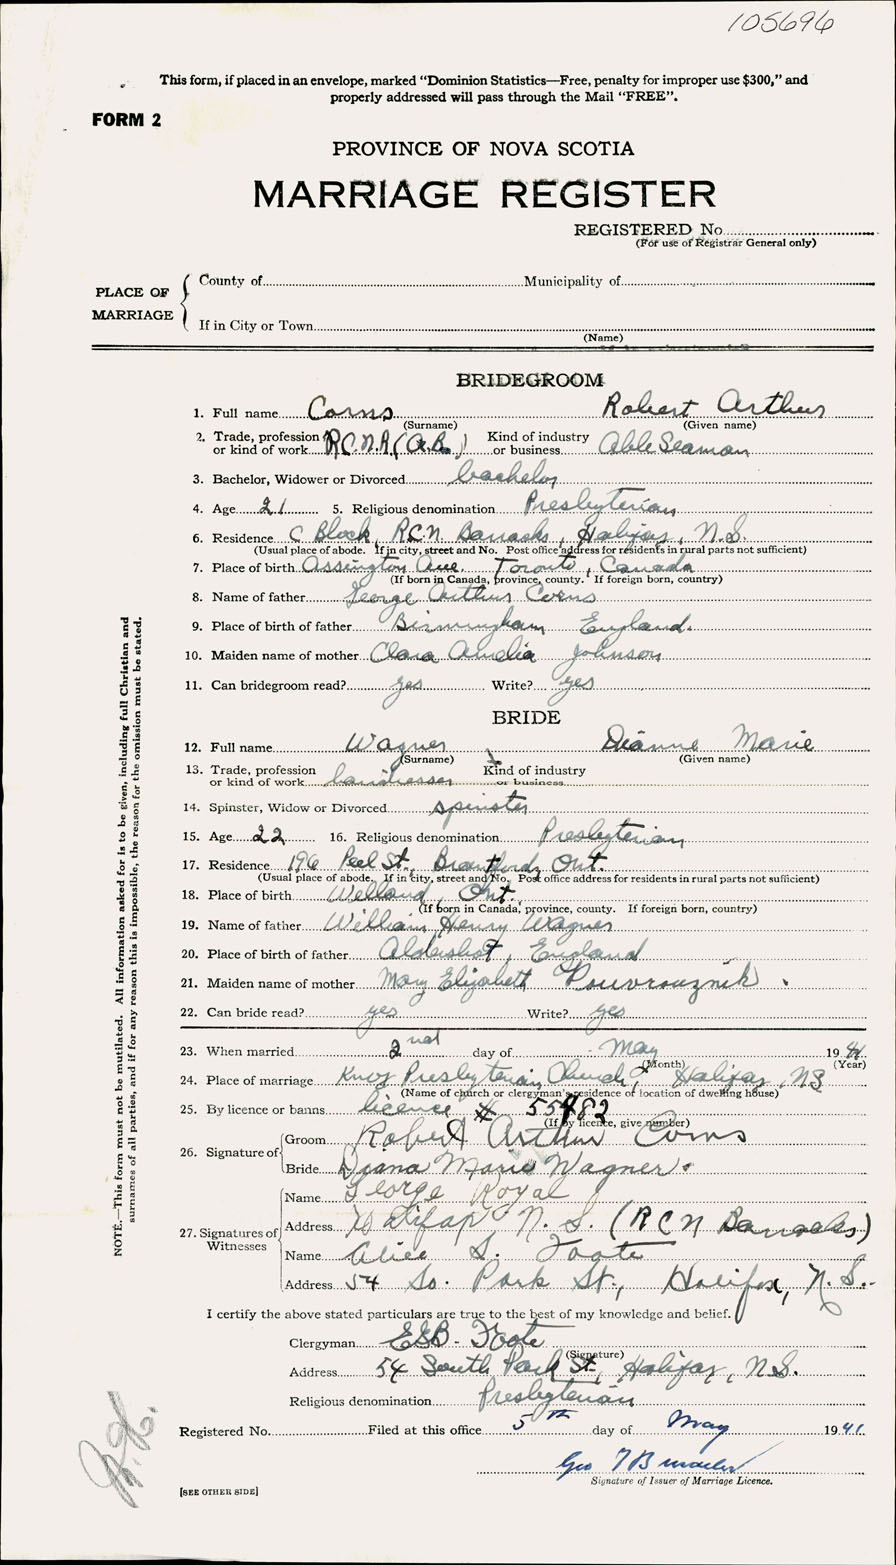 105696
This form, if placed in an envelope, marked “Dominion Statistics—Free, penalty for improper use $300,” and
properly addressed will pass through the Mail “FREE”.
FORM 2
PROVINCE OF NOVA SCOTIA
MARRIAGE REGISTER
REGISTERED No.
(For use of Registrar General only)
PLACE OF MARRIAGE
County of Municipality of
If in City or Town
(Name)
BRIDEGROOM
1. Full name Corns Robert Arthur
(Surname) (Given name)
2. Trade, profession or kind of work R.C.N.R (A.B.) Kind of industry or business Able Seaman
3. Bachelor, Widower or Divorced bachelor
4. Age 21 5. Religious denomination Presbyterian
6. Residence C Block, R.C.N. Barracks, Halifax, N.S.
(Usual place of abode. If in city, street and No. Post office address for residents in rural parts not sufficient)
7. Place of birth Assington Ave. Toronto, Canada
(If born in Canada, province, county. If foreign born, country)
8. Name of father George Arthur Corns
9. Place of birth of father Birmingham England.
10. Maiden name of mother Clara Amelia Johnson
11. Can bridegroom read? yes Write? yes
BRIDE
12. Full name Wagner Dianne Marie
(Surname) (Given name)
13. Trade, profession or kind of work hairdresser Kind of industry or business
14. Spinster, Widow or Divorced spinster
15. Age 22 16. Religious denomination Presbyterian
17. Residence 196 Peel St., Brantford, Ont.
(Usual place of abode. If in city, street and No. Post office address for residents in rural parts not sufficient)
18. Place of birth Welland, Ont.
(If born in Canada, province, county. If foreign born, country)
19. Name of father William Henry Wagner
20. Place of birth of father Aldershot, England
21. Maiden name of mother Mary Elizabeth Pouvrouznik.
22. Can bride read? yes Write? yes
23. When married 2nd day of May 1941
(Month) (Year)
24. Place of marriage Knox Presbyterian Church, Halifax, NS
(Name of church or clergyman's residence or location of dwelling house)
25. By licence or banns licence # 55982
(If by licence, give number)
26. Signature of
Groom Robert Arthur Corns
Bride Diana Marie Wagner.
27. Signatures of Witnesses
Name George Royal
Address Halifax N.S. (RCN Barracks)
Name Alice S. Foote
Address 54 So. Park St., Halifax, N.S.
I certify the above stated particulars are true to the best of my knowledge and belief.
Clergyman EGB. Foote
(Signature)
Address 54 South Park St., Halifax, N.S.
Religious denomination Presbyterian
Registered No. Filed at this office 5th day of May 1941.
Geo
Signature of Issuer of Marriage Licence.
[SEE OTHER SIDE]
NOTE.—This form must not be mutilated. All information asked for is to be given, including full Christian and
surnames of all parties, and if for any reason this is impossible, the reason for the omission must be stated.